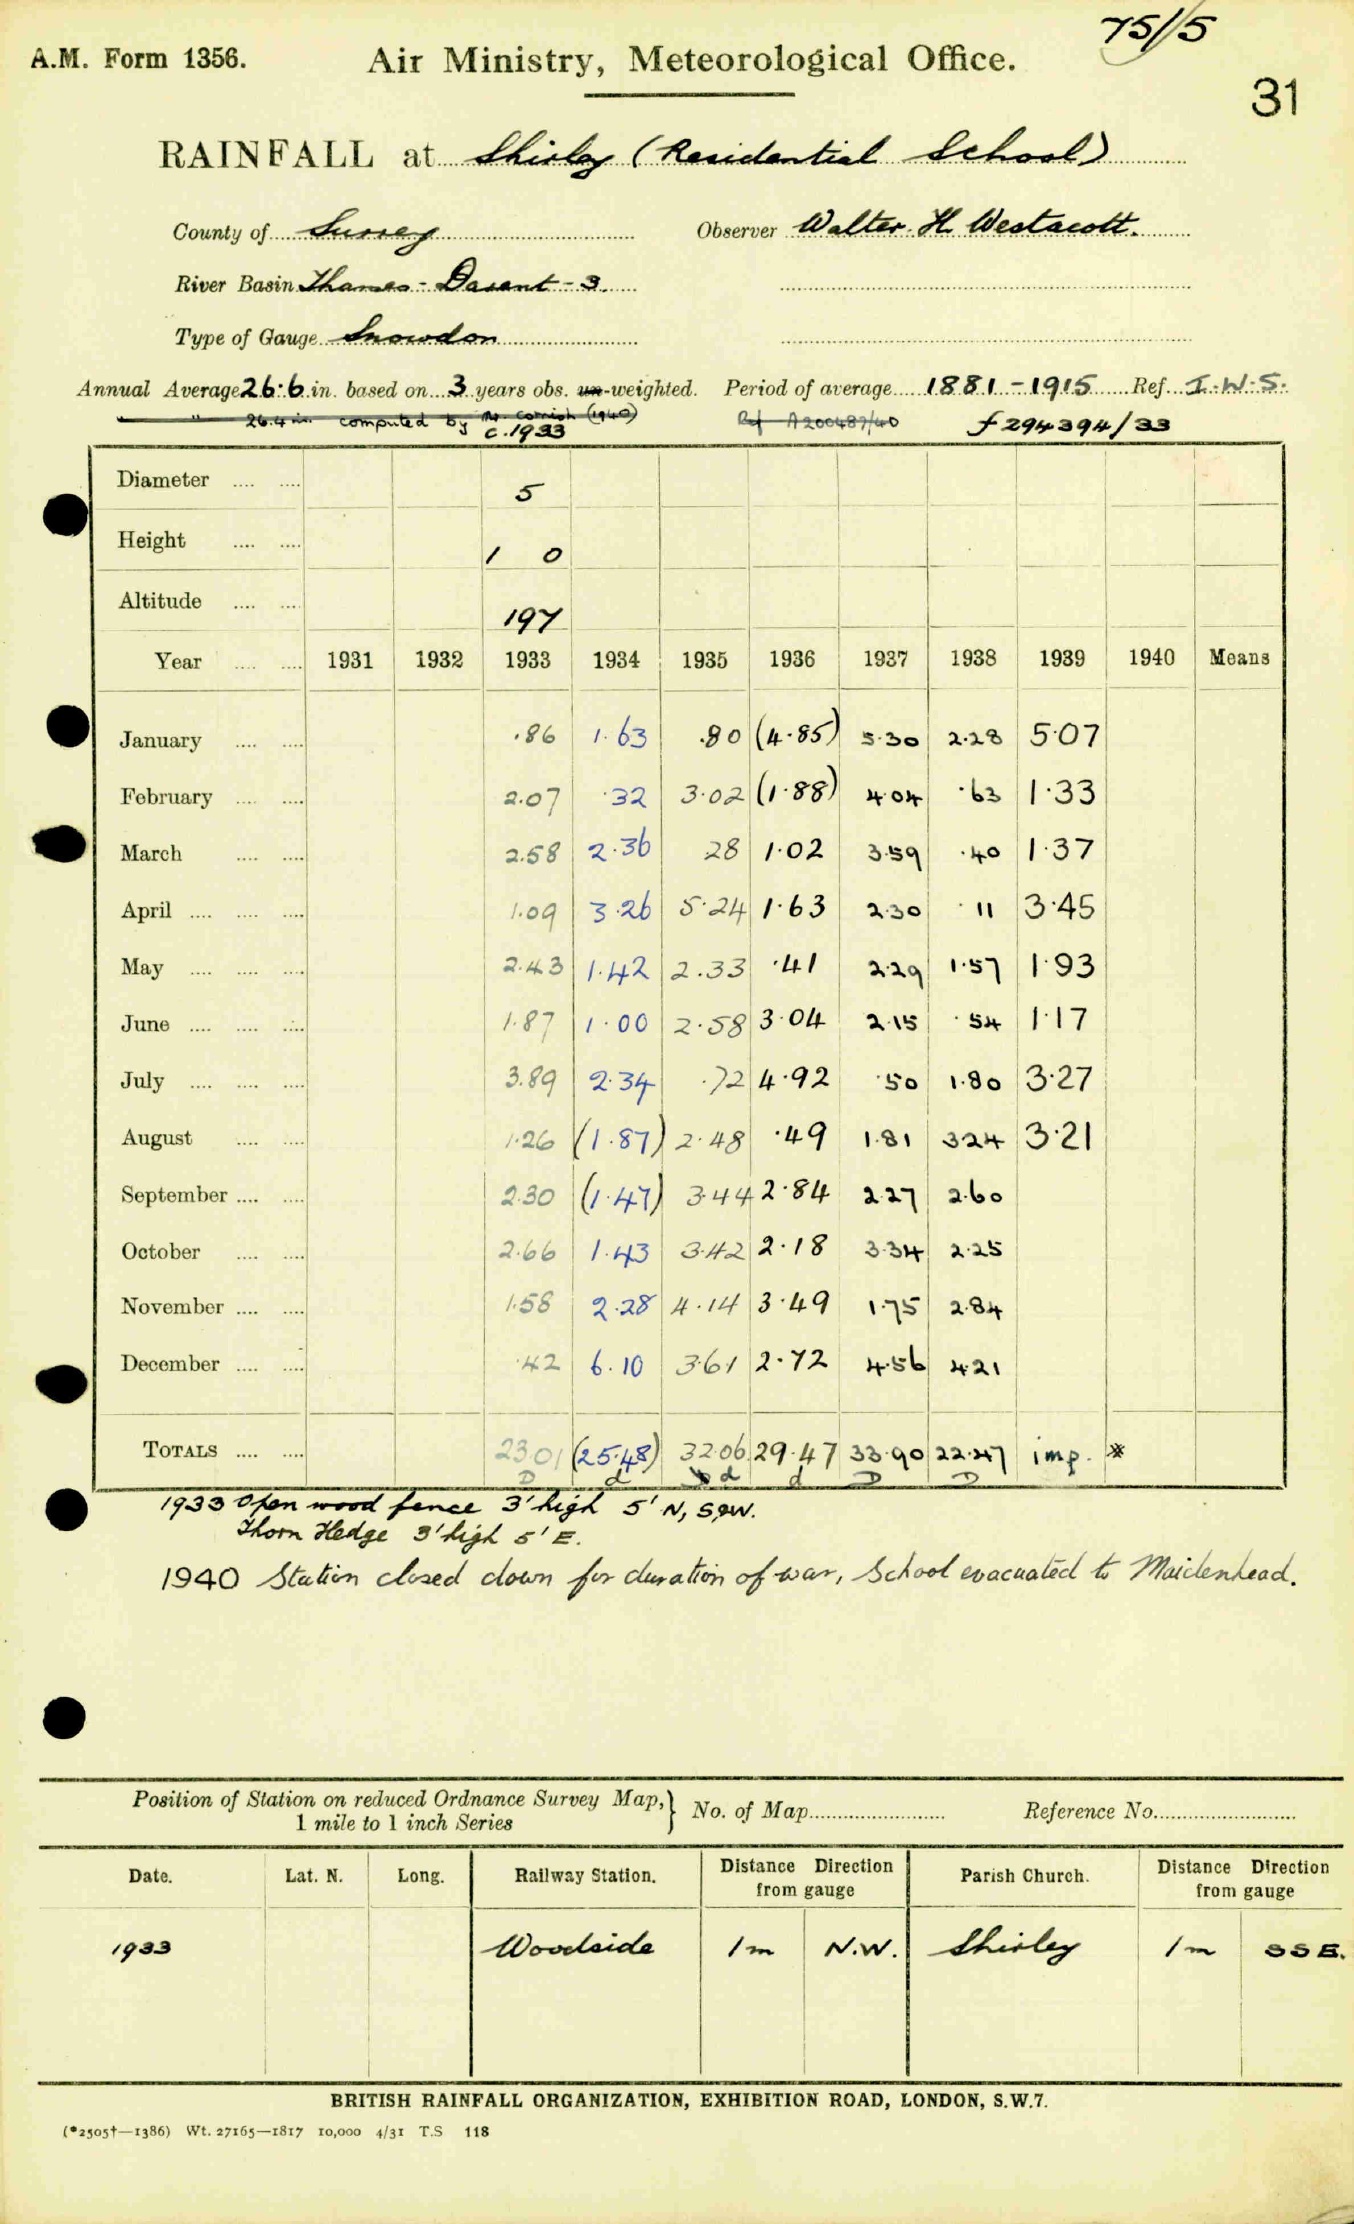 75/5
A.M. Form 1356. Air Ministry, Meteorological Office.
31
RAINFALL at Shirley (Residential School)
County of Surrey Observer Walter H. Westacott.
River Basin Thames - Darent - 3.
Type of Gauge Snowdon
Annual Average 26.6 in. based on 3 years obs. un-weighted. Period of average 1881-1915 Ref. I.W.S.
" " 26.4 in. computed by Mr. Cornish (1940) Ref A200487/40 f 294394/33
c.1933
Diameter .... .... 5
Height .... .... 1 0
Altitude .... .... 197
Year .... .... 1931 1932 1933 1934 1935 1936 1937 1938 1939 1940 Means
January .... .... .86 1.63 .80 (4.85) 5.30 2.28 5.07
February .... .... 2.07 .32 3.02 (1.88) 4.04 .63 1.33
March .... .... 2.58 2.36 28 1.02 3.59 .40 1.37
April .... .... .... 1.09 3.26 5.24 1.63 2.30 .11 3.45
May .... .... .... 2.43 1.42 2.33 .41 2.29 1.57 1.93
June .... .... .... 1.87 1.00 2.58 3.04 2.15 .54 1.17
July .... .... .... 3.89 2.34 .72 4.92 .50 1.80 3.27
August .... .... 1.26 (1.87) 2.48 .49 1.81 3.24 3.21
September .... .... 2.30 (1.47) 3.44 2.84 2.27 2.60
October .... .... 2.66 1.43 3.42 2.18 3.34 2.25
November .... .... 1.58 2.28 4.14 3.49 1.75 2.84
December .... .... .42 6.10 3.61 2.72 4.56 4.21
TOTALS .... .... 23.01 (25.48) 32.06 29.47 33.90 22.47 imp. *
D d d d D D
1933 Open wood fence 3' high 5' N, S, W.
Thorn Hedge 3' high 5' E.
1940 Station closed down for duration of war, School evacuated to Maidenhead.
Position of Station on reduced Ordnance Survey Map, } No. of Map Reference No.
1 mile to 1 inch Series
Date. Lat. N. Long. Railway Station. Distance Direction from gauge Parish Church. Distance Direction from gauge
1933 Woodside 1m N.W. Shirley 1m SSE.
BRITISH RAINFALL ORGANIZATION, EXHIBITION ROAD, LONDON, S.W.7.
(*2505†—1386) Wt. 27165—1817 10,000 4/31 T.S 118